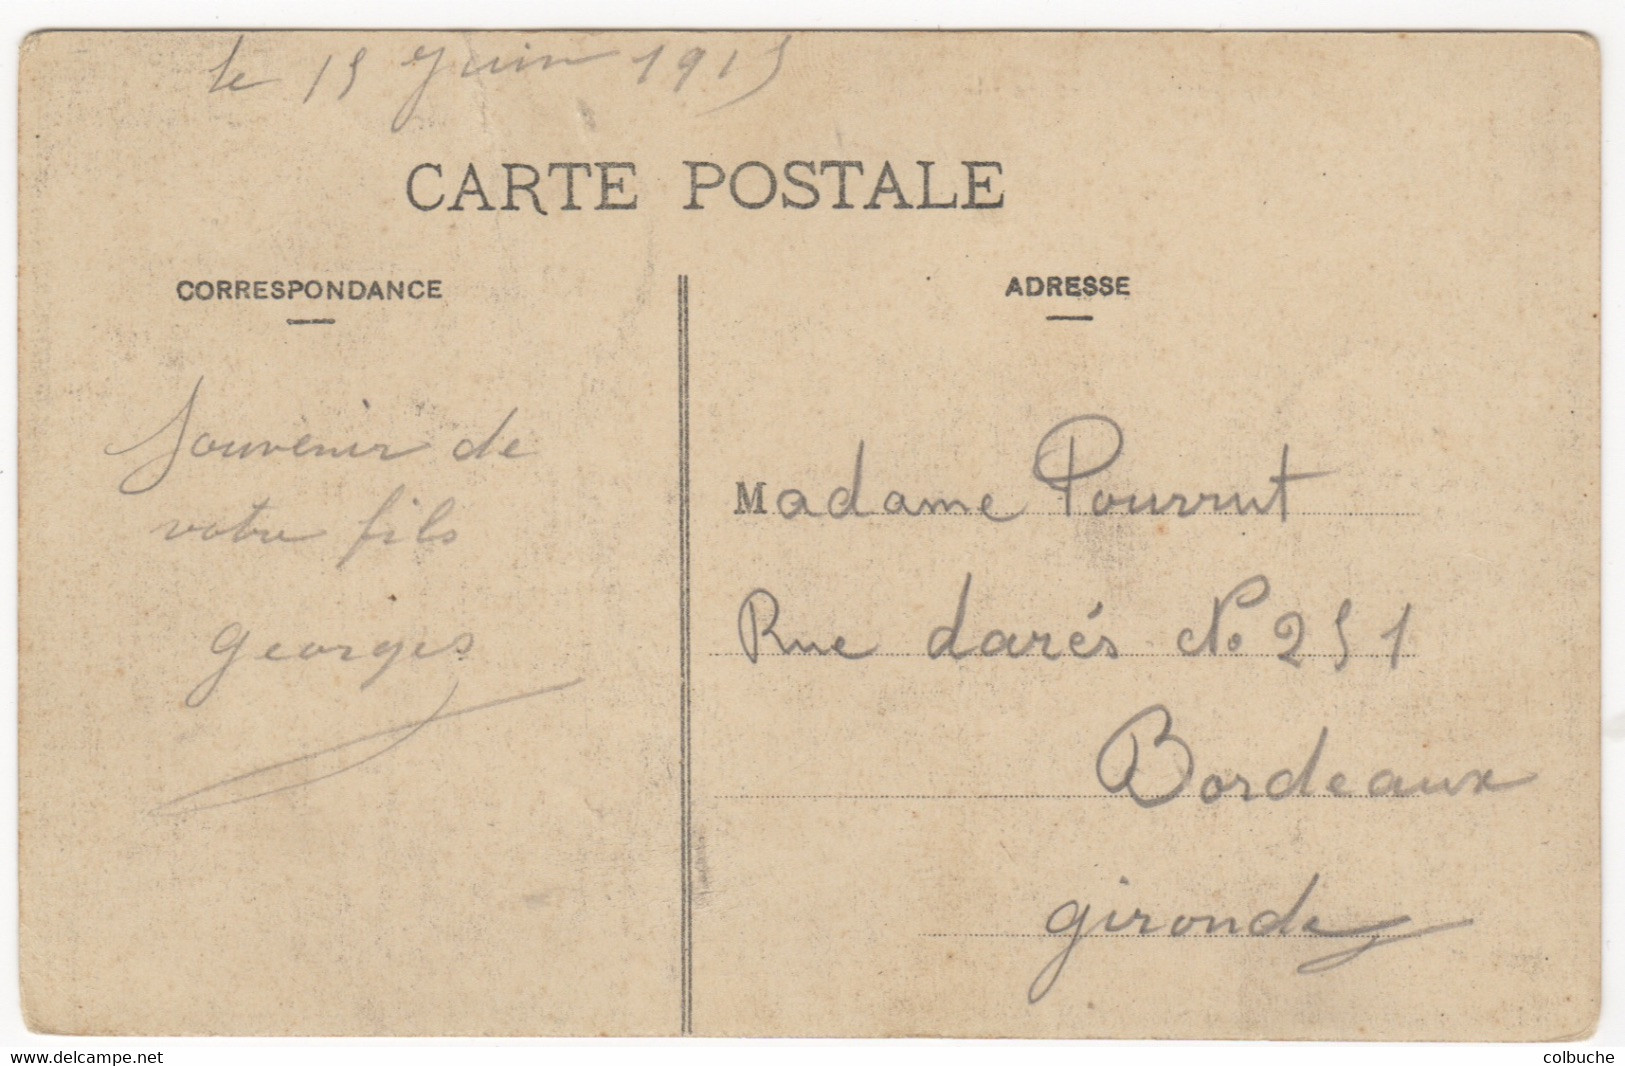 le 15 Juin 1915
CARTE POSTALE
CORRESPONDANCE
ADRESSE
Souvenir de
votre fils
georges
Madame Pourrut
Rue darés No 251
Bordeaux
gironde
www.delcampe.net
colbuche